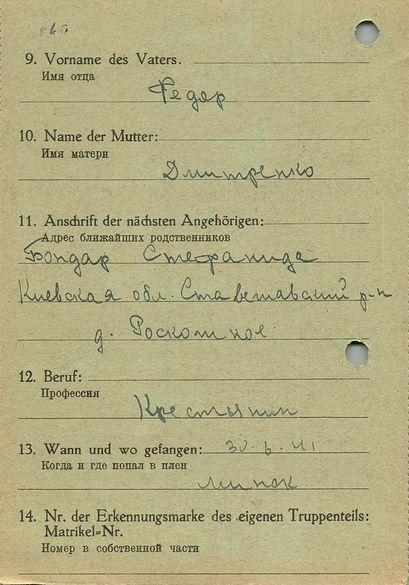 9. Vorname des Vaters.
Имя отца
Федор
10. Name der Mutter:
Имя матери
Дмитренко
11. Anschrift der nächsten Angehörigen:
Адрес ближайших родственников
Бондар Стефанида
Киевская обл. Ставетавский р-н
д. Роскотное
12. Beruf:
Профессия
Крестьянин
13. Wann und wo gefangen: 30.6.41
Когда и где попал в плен
Минск
14. Nr. der Erkennungsmarke des eigenen Truppenteils:
Matrikel-Nr.
Номер в собственной части